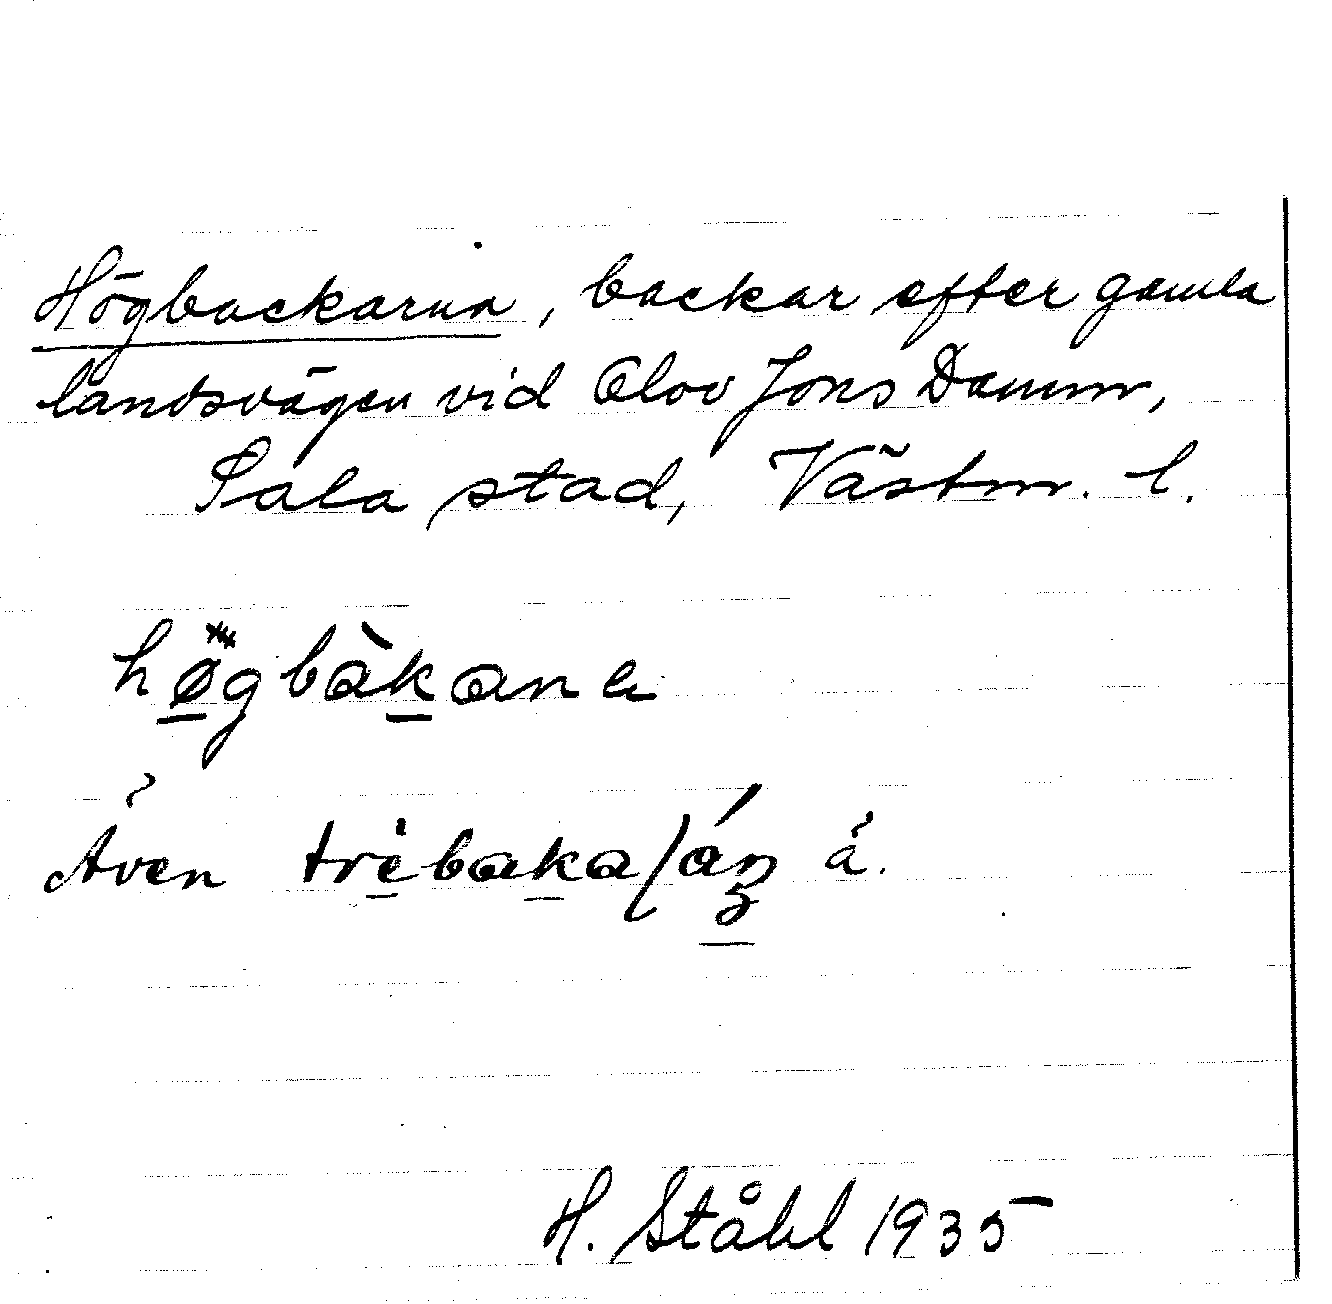 Högbackarna, backar efter gamla
landsvägen vid Olov Jons Damm,
Sala stad, Västm. l.
hø̀gbàkana
Även trèbaka/áɳ ä.
H. Ståhl 1935